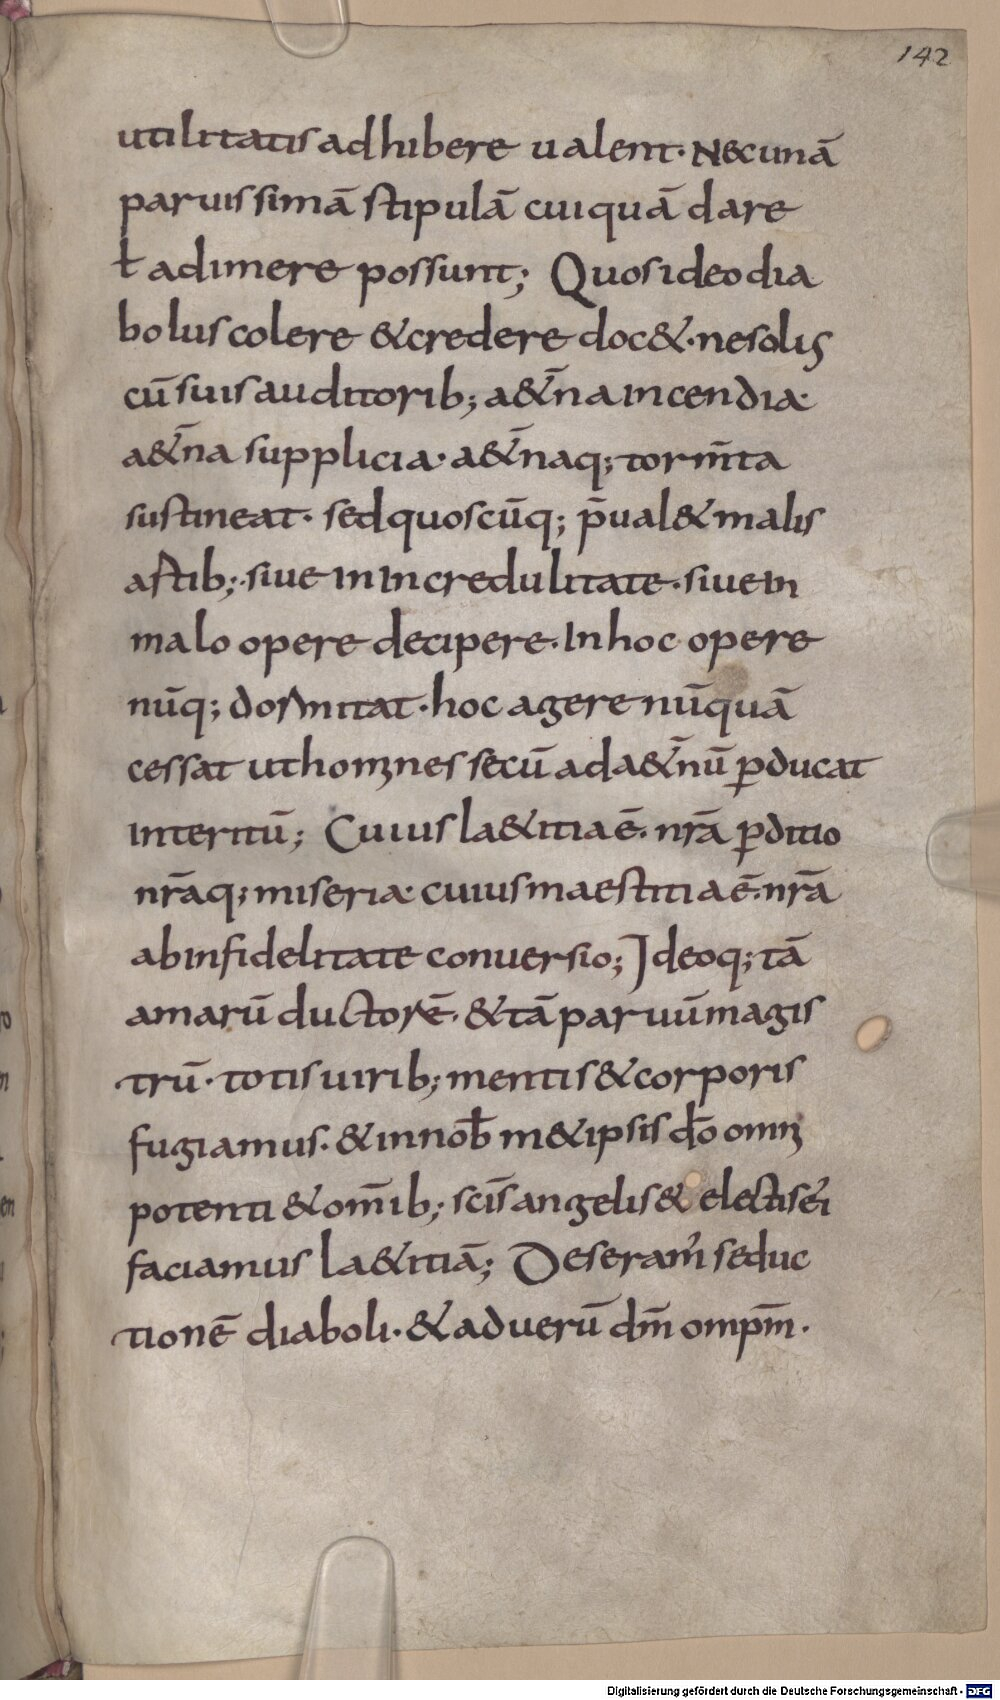 142
utilitatis adhibere ualent· Nec unā
paruissimā stipulā cuiquā dare
ł adimere possunt; Quos ideo dia
bolus colere & credere doc&· ne solis
cū suis auditorib; a&̄na incendia·
a&̄na supplicia· a&̄naq; torm̄ta
sustineat· sed quoscūq; p̄ual& malis
astib;· siue in incredulitate· siue in
malo opere decipere· In hoc opere
nūq; dormitat· hoc agere nūquā
cessat ut homines secū ad a&̄nū ꝑducat
interitū; Cuius la&itia ē· nr̄a ꝑditio
nr̄aq; miseria· cuius maestitia ē· nr̄a
ab infidelitate conuersio; Ideoq; tā
amarū ductorē· & tā paruū magis
trū· totis uirib; mentis & corporis
fugiamus· & in nob̄ m&ipsis do̅ omni
potenti & om̄ib; sc̄is angelis & electis ei
faciamus la&itiā; Deseram' seduc
tionē diaboli· & ad uerū dm̄ ompm̄·
Digitalisierung gefördert durch die Deutsche Forschungsgemeinschaft - DFG